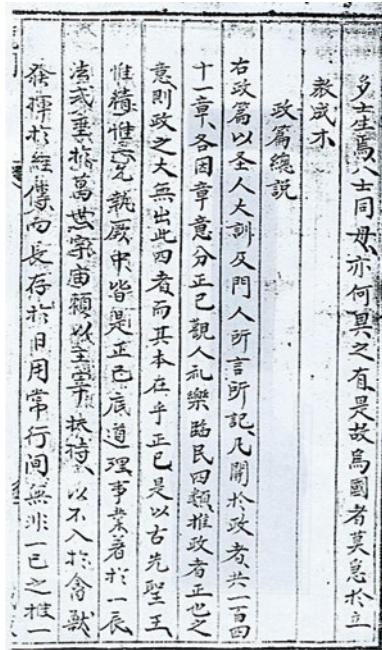 多士生焉八士同母亦何異之有是故爲國者莫急於立
教成才
政篇總説
右政篇以圣人大訓及門人所言所記凡關於政者共一百四
十一章各因章意分正己觀人礼樂臨民四類推政者正也之
意則政之大無出此四者而其本在乎正己是以古先聖王
惟精惟一允執厥中皆是正己底道理事業著於一辰
法或垂於萬世宇宙頼以主宰扶持以不入於禽獸
發揮於經傳而長存於日用常行间無非一己之推一